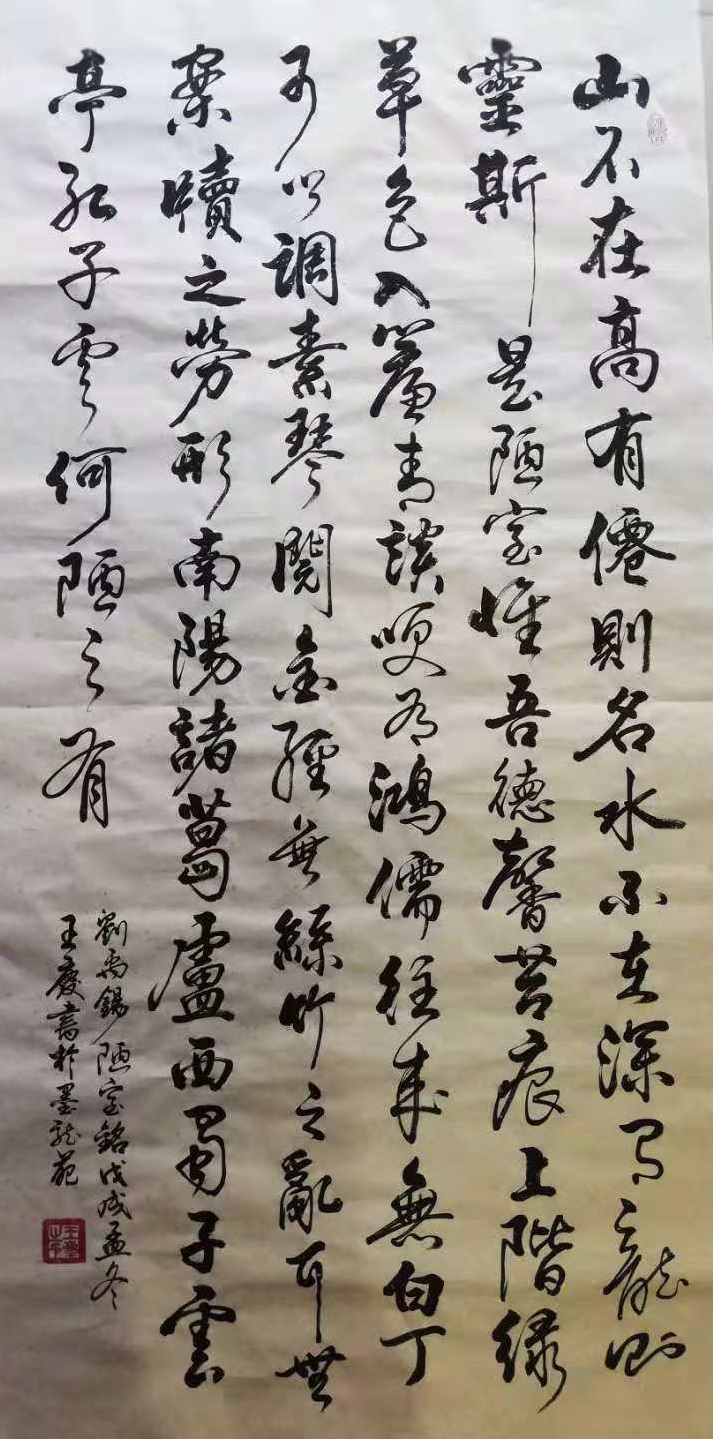 山不在高有僊則名水不在深有龍則
靈斯是陋室惟吾德馨苔痕上階緑
草色入簾青談咲有鴻儒往來無白丁
可以調素琴閲金經無絲竹之亂耳無
案牘之勞形南陽諸葛廬西蜀子雲
亭孔子雲何陋之有
劉禹錫陋室銘戊戌孟冬
王慶書於墨龍苑